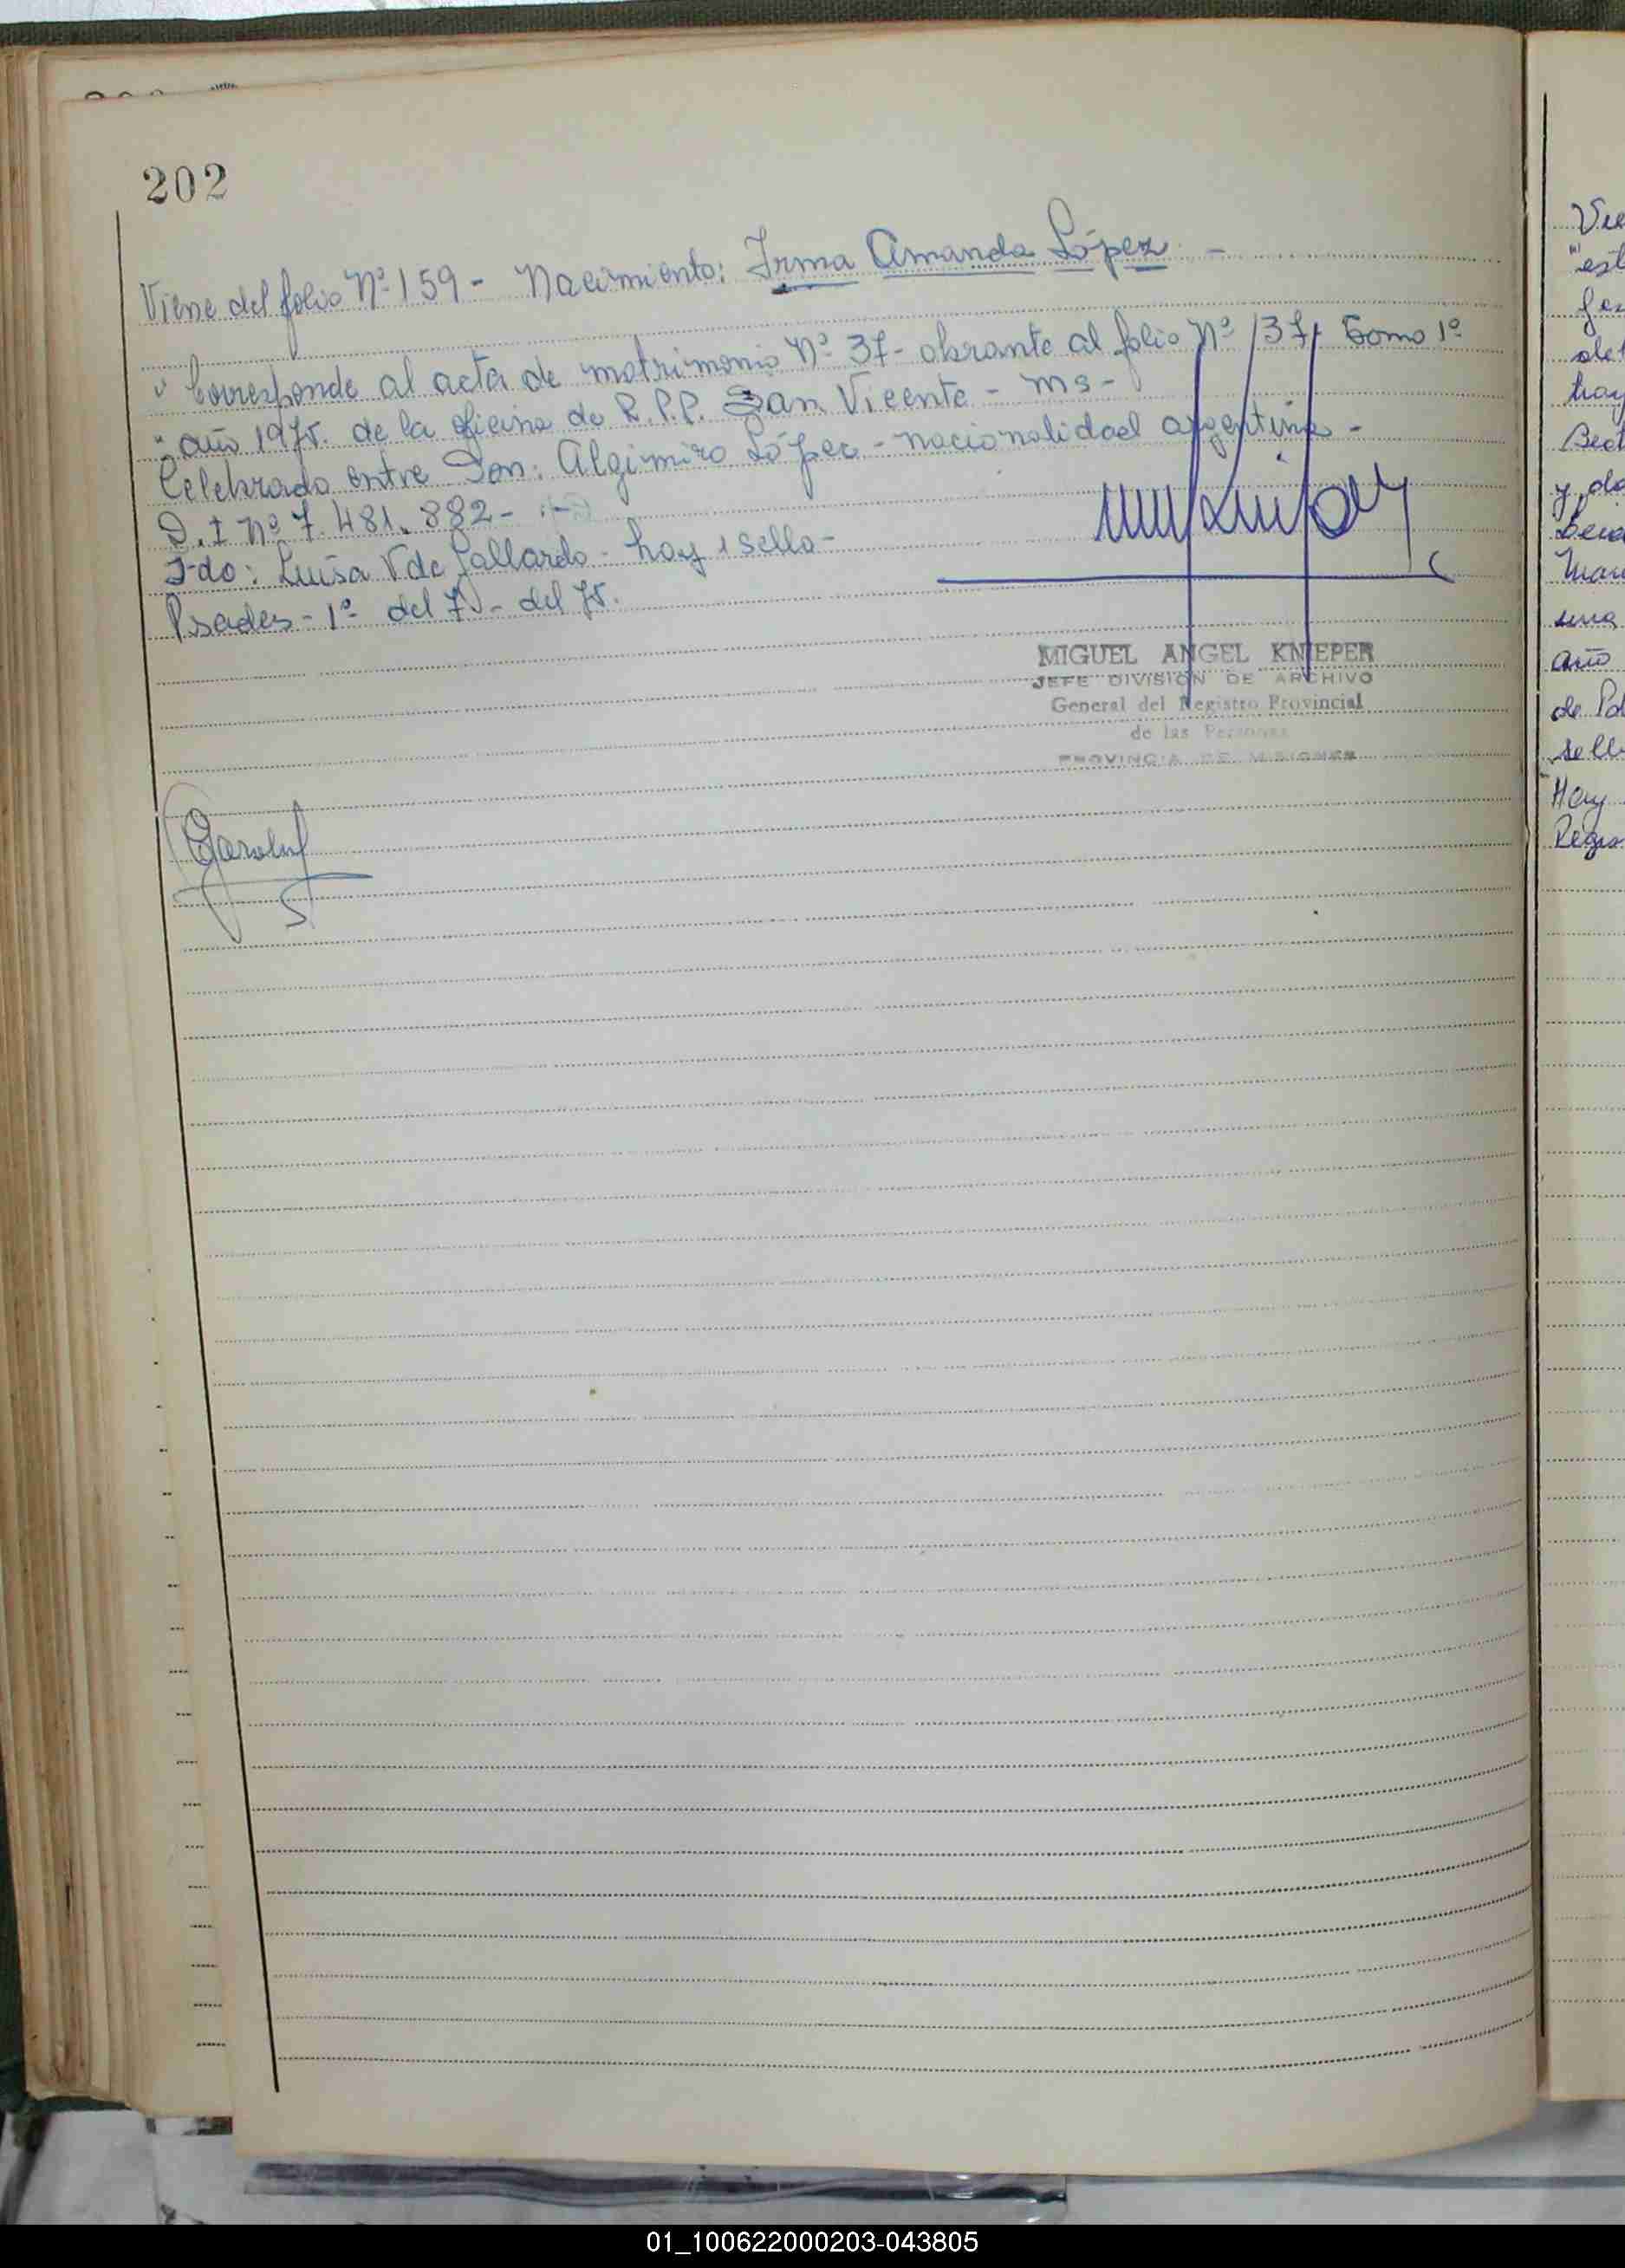 202
Viene del folio Nº 159 - Nacimiento: Irma Amanda López. -
" Corresponde al acta de matrimonio Nº 37 - obrante al folio Nº 137 Tomo 1º
" año 1975. de la oficina de R.P.P. San Vicente - Ms -
Celebrado entre Don: Algimiro López - nacionalidad argentina -
D.I Nº 7.481.882 -
Fdo: Luisa V de Gallardo - hay 1 sello -
Psadas - 1º del 7 - del 75.
MIGUEL ANGEL KNIEPER
JEFE DIVISION DE ARCHIVO
General del Registro Provincial
de las Personas
PROVINCIA DE MISIONES
Vie
"est
de
hay
y do
Mar
una
año
de Po
sell
Hay
Regis
01_100622000203-043805